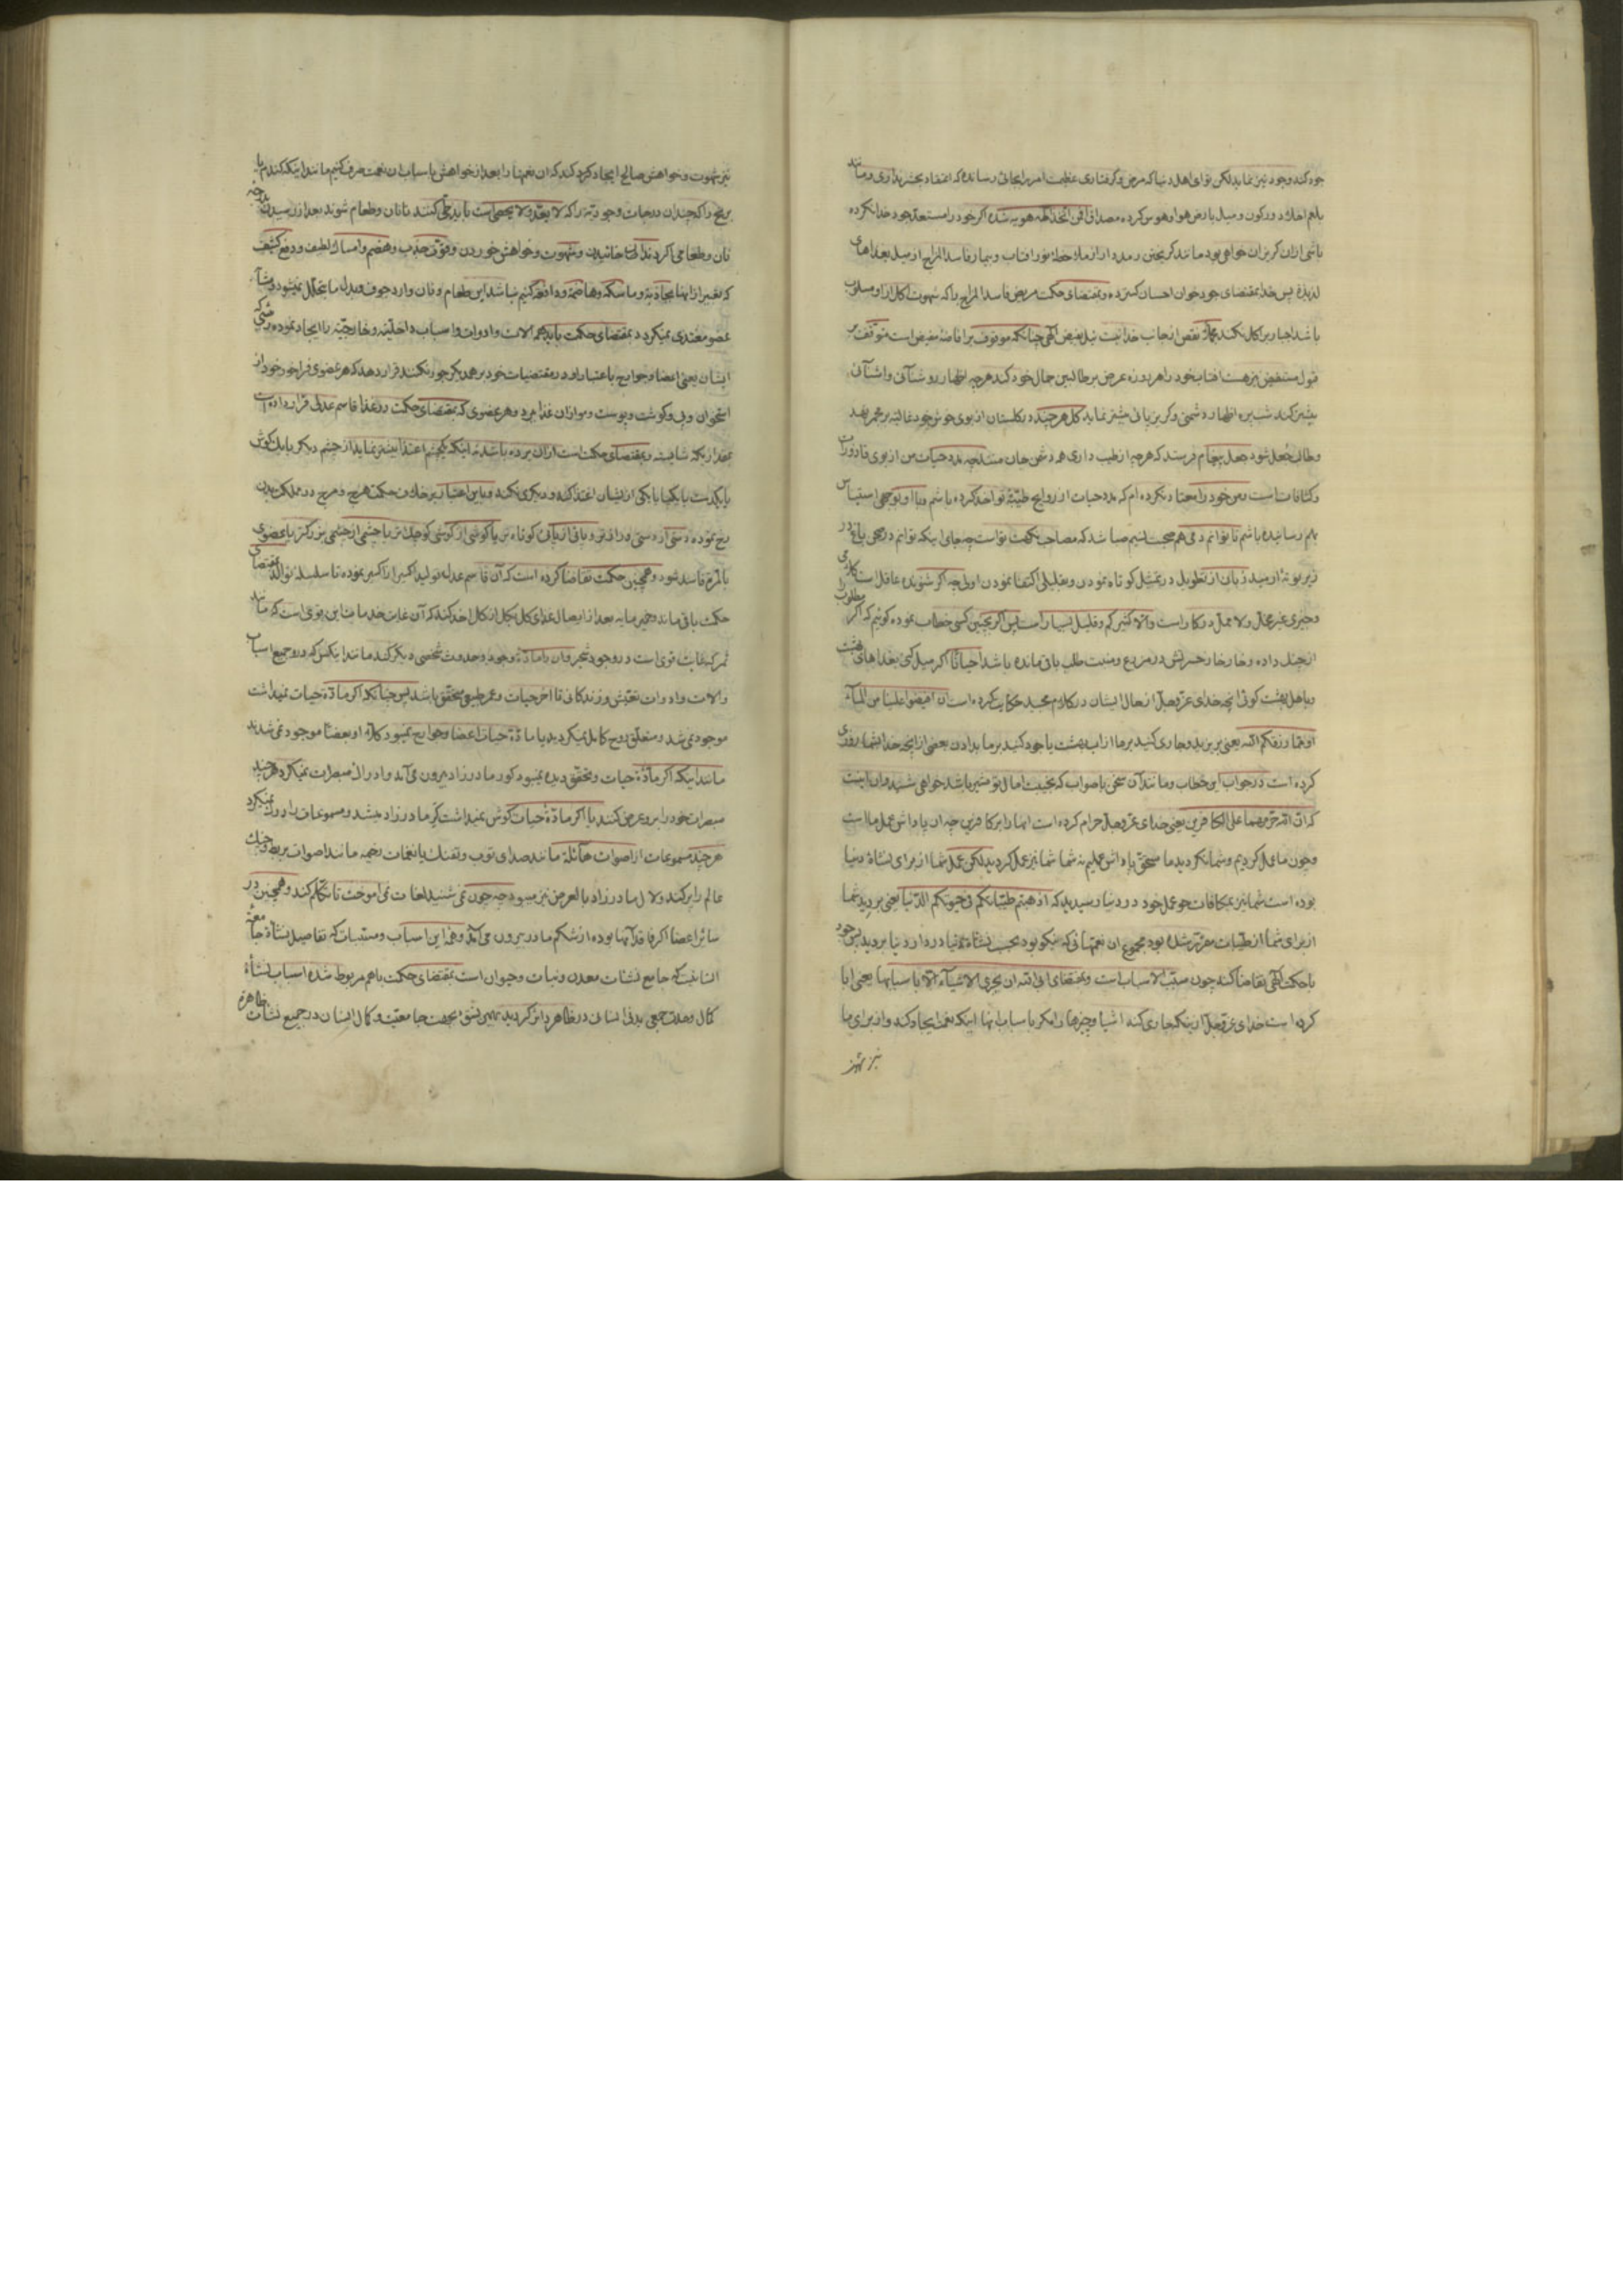 جود کند وجود نیز نماید لکن تو ای اهل دنیا که مرض و گرفتاری عظیمت امر بر ایجائی رسانده که اعتقاد بحشر نداری و مانند
باشی از ان کریزان خواهی بود مانند کریختن رمد دار از ملاحظه نور افتاب و بیمار فاسد المزاج از میل بغذاهای
لذیذه پس خدا بمقتضای جود خوان احسان کسترده و بمقتضای حکمت مریض فاسد المزاج را که شهوت اکل از او مسلوب
باشد اجبار بر اکل نکند نقص از جانب خدا نیست نیل بفیض الهی چنانکه موقوف بر افاضهٔ مفیض است متوقف بر
قبول مستفیض نیز هست افتاب خود را هر روزه عرض بر طالبین جمال خود کند هر چه اظهار روشنائی و اشنائی
بیشتر کند شب پره اظهار دشمنی و کریز پائی بیشتر نماید کل هر چند در کلستان از بوی خوش خود غالیه بر مجمر نهد
و طالب جعل شود جعل پیغام فرستد که هر چه از طیب داری همه دشمن جان منست چه مدد حیات من از بوی قاذورات
و کثافات است و من خود را معتاد نکرده ام که مدد حیات از روایح طیبهٔ تو اخذ کرده باشم و با او بوجهی استیناس
بهم رسانیده باشم تا توانم دمی هم صحبت نسیم صبا شد که مصاحب نکهت تو است چه جای اینکه توانم در صحن باغ در
و چیزی غیر مخل و لا ممل در کار است و الا کثیر کم و قلیل بسیار است پس اگر بچنین کسی خطاب نموده گوئیم که اگر مطلوب را
از چنگ داده و خار خار خسرانش در مزرع و منبت طلب باقی مانده باشد احیانا اگر میل کنی بغذاهای بهشت
و باهل بهشت کوئی انچه خدای عز و جل از حال ایشان در کلام مجید حکایت کرده است ان افیضوا علینا من المآء
او مما رزقکم الله یعنی بریزید و جاری کنید بر ما از اب بهشت یا جود کنید بر ما بدادن بعضی از انچه خدا بشما روزی
کرده است در جواب این خطاب و مانند آن سخن با صواب که بخیبت امال تو مشیر باشد خواهی شنید و ان اینست
که ان الله حرمهما علی الکافرین یعنی خدای عز و جل حرام کرده است انها را بر کافرین چه ان پاداش عمل ما است
و چون ما عمل کردیم و شما نکردید ما مستحق پاداش عملیم نه شما شما نیز عمل کردید لکن عمل شما از برای نشاهٔ دنیا
بوده است شما نیز بمکافات عمل خود در دنیا رسیدید که اذهبتم طیباتکم فی حیوتکم الدنیا یعنی بردید شما
از برای شما از طیبات مقرر شده بود مجموع ان نعمتهائی که نیکو بود بحسب نشاهٔ دنیا در دار دنیا بردید پس جود
با حکمت الهی تقاضا کند چون مسبب الاسباب است و بمقتضای ابی الله ان یجری الاشیآء الا باسبابها یعنی ابا
کرده است خدای عز و جل از اینکه جاری کند اشیا و چیزها را مگر باسباب انها اینکه نعمت ایجاد کند و از برای ما
نیز
نیز شهوت و خواهش صالح ایجاد کرد کند که ان نعمتها را بعد از خواهش باسباب ان نعمت صرف کنیم مانند اینکه کندم یا
برنج را که چندان درجات وجودیه را که لا یعد و لا یحصی است باید طی کنند تا نان و طعام شوند بعد از رسیدن بدرجهٔ
نان و طعامی اگر دندان خائیدن و شهوت و خواهش خوردن و قوت جذب و هضم و امساک لطیف و دفع کثیف
که تعبیر از انها بجاذبه و ماسکه و هاضمه و دافعه کنیم نباشد این طعام و نان وارد جوف و بدل ما یتحلل نمیشود
عضو مغتذی نمیکردد بمقتضای حکمت باید همه الات و ادوات و اسباب داخلیه و خارجیه را ایجاد نموده
ایشان یعنی اعضا و جوارح باعتبار او در مقتضیات خود بر همدیکر جور نکنند قرار دهد که هر عضوی فراخور خود از
استخوان و پی و کوشت و پوست و مو از ان غذا برد و هر عضوی که بمقتضای حکمت در غذا قاسم عدلی قرار داده است
بقدر آنکه شایسته و بمقتضای حکمت است از ان برده باشد نه اینکه یکچشم اغتذا بیشتر نماید از چشم دیکر یا یک کوش
یا یکدست یا یکپا یا یکی از ایشان اغتذا کند و دیکری نکند و باین اعتبار بر خلاف حکمت هرج و مرج در مملکت بدن
رخ نموده دستی از دستی درازتر و پائی از پائی کوتاه تر یا کوشی از کوشی کوچکتر یا چشمی از چشمی بزرکتر یا عضوی
بالمره فاسد شود و همچنین حکمت تقاضا کرده است که آن قاسم عدل تولید اکسیر از اکسیر نموده تا سلسلهٔ توالد بمقتضای
حکمت باقی ماند و خمیر مایه بعد از ایصال غذای کل بکل از کل اخذ کند که آن غایت خدمات این قوی است که مانند
ثمر که غایت قوی است در وجود شجر و ان را مادهٔ وجود و حدوث شخصی دیکر کند مانند اینکس که در جمیع اسباب
و الات و ادوات تعیش و زندکانی تا اخر حیات و عمر طبیعی محقق باشد پس چنانکه اگر مادهٔ حیات نمیداشت
موجود نمیشد و متعلق روح کامل نمیکردید یا مادهٔ حیات اعضا و جوارح نمیبود کلا او بعضا موجود نمیشدند
مانند اینکه اگر مادهٔ حیات و تحقق دیده نمیبود کور مادرزاد بیرون می آمد و ادراک مبصرات نمیکرد هر چند
مبصرات خود را بر او عرض کنند یا اگر مادهٔ حیات کوش نمیداشت کر مادرزاد میشد و مسموعات را درک نمیکرد
هر چند مسموعات از اصوات هائله مانند صدای توپ و تفنک یا نغمات رخیمه مانند اصوات بربط و چنک
عالم را پر کند و لال مادرزاد بالعرض نیز میبود چه چون نمی شنید لغات نمی اموخت تا تکلم کند و همچنین در
سائر اعضا اگر فاقد آنها بوده از شکم مادر بیرون می آمد و همه این اسباب و مسببات که تفاصیل نشاهٔ جامعهٔ
انسانیت که جامع نشئات معدن و نبات و حیوان است بمقتضای حکمت باهم مربوط شده اسباب نشاهٔ
کمال وحدت جمعی بدنی انسانی در ظاهر دائر کردید بهمین نسق بجهت جامعیت و کمال انسان در جمیع نشئات ظاهره